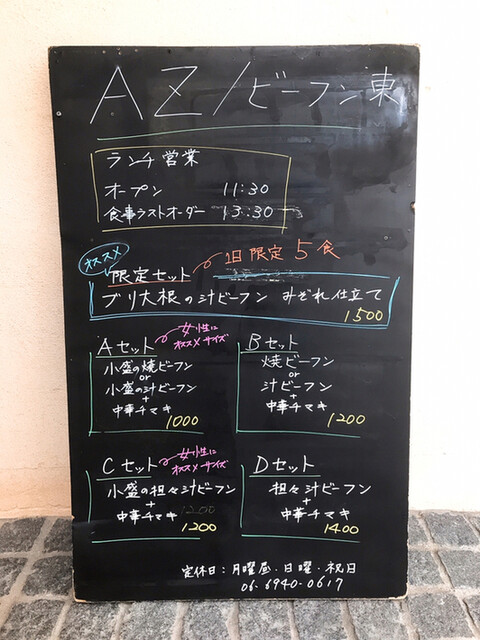 AZ/ビーフン東
ランチ営業
オープン 11:30
食事ラストオーダー 13:30
オススメ
限定セット 1日限定5食
ブリ大根の汁ビーフン みぞれ仕立て
1500
Aセット 女性にオススメサイズ
小盛の焼ビーフン
or
小盛の汁ビーフン
+
中華チマキ
1000
Bセット
焼ビーフン
or
汁ビーフン
+
中華チマキ
1200
Cセット 女性にオススメサイズ
小盛の担々汁ビーフン
+
中華チマキ
1200
Dセット
担々汁ビーフン
+
中華チマキ
1400
定休日:月曜昼・日曜・祝日
06-6940-0617